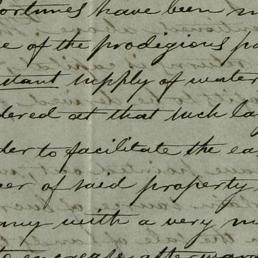 fortunes have been m
e of the prodigious po
stant supply of water
dered at that such la
der to facilitate the ea
er of said property
any with a very m